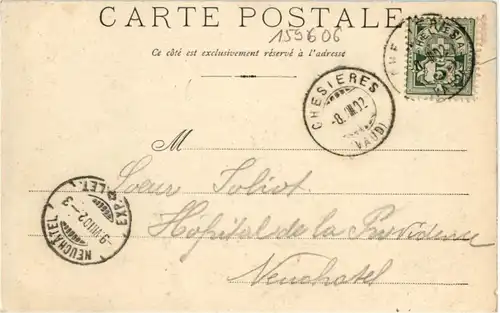 CARTE POSTALE
159606
Ce côté est exclusivement réservé à l'adresse
HELVETIA
5
CHESIERES
-8.VIII.02
(VAUD)
M
Soeur Joliot
Hôpital de la Providence
Neuchatel
NEUCHÂTEL
-9.VIII.02-3
EXP. LET.